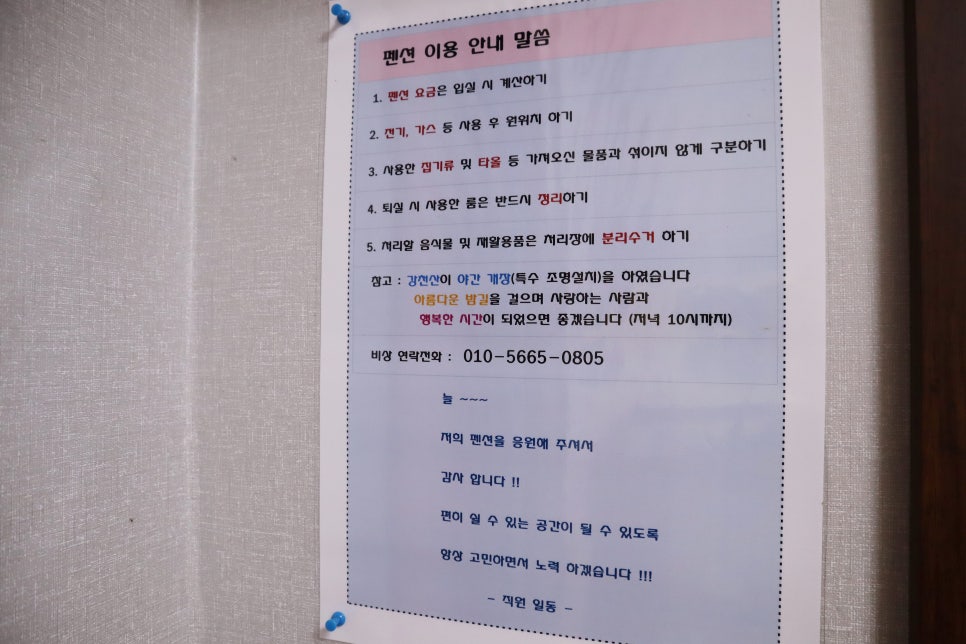 펜션 이용 안내 말씀
1. 펜션 요금은 입실 시 계산하기
2. 전기, 가스 등 사용 후 원위치 하기
3. 사용한 집기류 및 타올 등 가져오신 물품과 섞이지 않게 구분하기
4. 퇴실 시 사용한 룸은 반드시 정리하기
5. 처리할 음식물 및 재활용품은 처리장에 분리수거 하기
참고 : 강천산이 야간 개장(특수 조명설치)을 하였습니다
아름다운 밤길을 걸으며 사랑하는 사람과
행복한 시간이 되었으면 좋겠습니다 (저녁 10시까지)
비상 연락전화 : 010-5665-0805
늘 ~~~
저희 펜션을 응원해 주셔서
감사 합니다 !!
편이 쉴 수 있는 공간이 될 수 있도록
항상 고민하면서 노력 하겠습니다 !!!
- 직원 일동 -